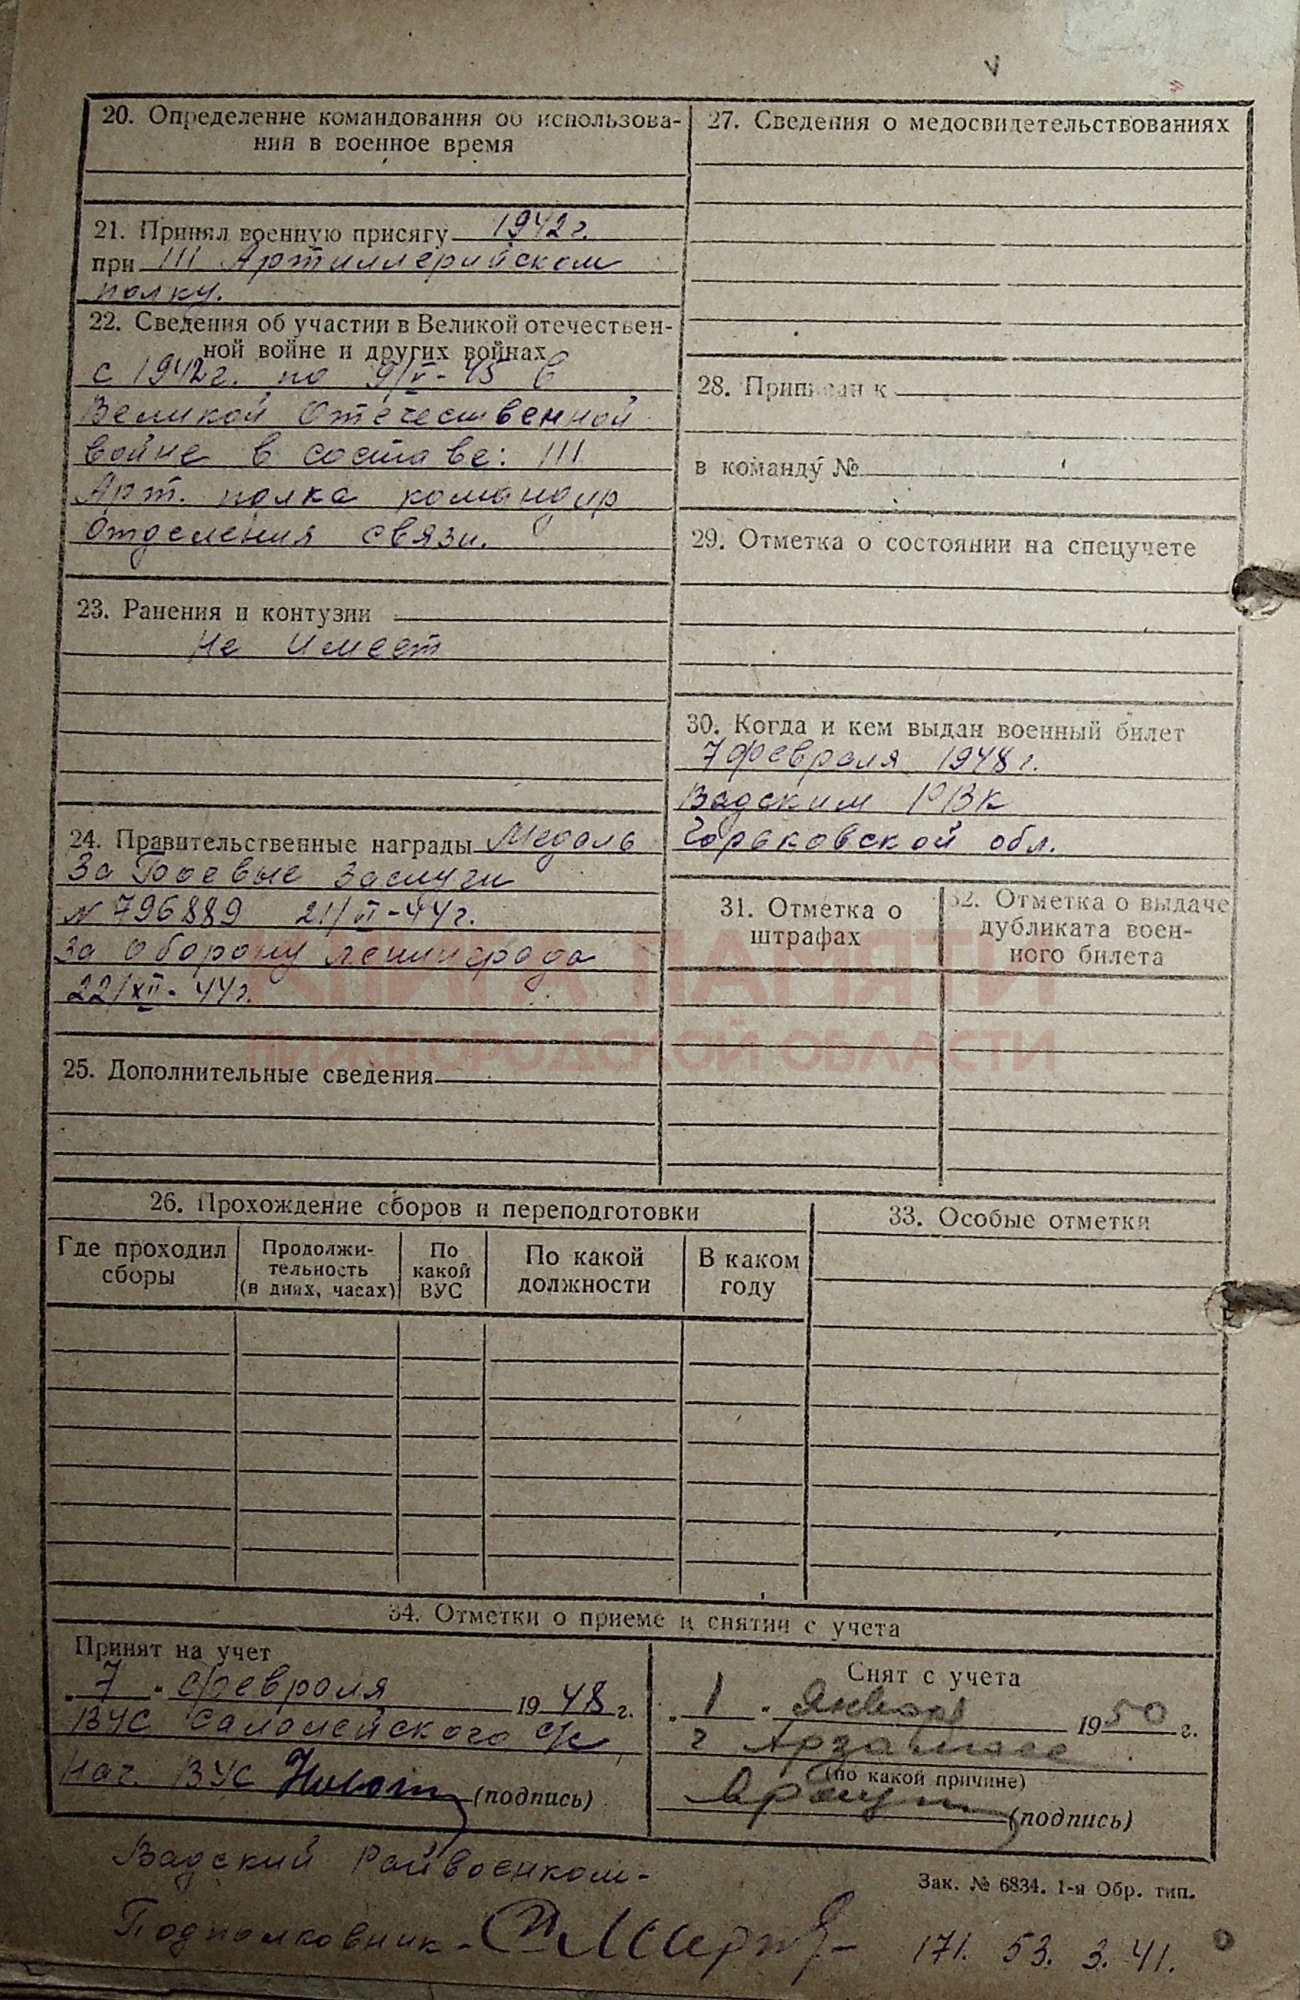 20. Определение командования об использова-
нии в военное время
21. Принял военную присягу 1942 г.
при 111 Артиллерийском
полку.
22. Сведения об участии в Великой отечествен-
ной войне и других войнах
с 1942 г. по 9/V-45 в
Великой Отечественной
войне в составе: 111
Арт. полка командир
отделения связи.
23. Ранения и контузии
Не имеет
24. Правительственные награды Медаль
За Боевые Заслуги
N 796889 21/VI-44 г.
За оборону Ленинграда
22/XII-44 г.
25. Дополнительные сведения
27. Сведения о медосвидетельствованиях
28. Приписан к
в команду №
29. Отметка о состоянии на спецучете
30. Когда и кем выдан военный билет
7 февраля 1948 г.
Вадским РВК
Горьковской обл.
31. Отметка о
штрафах
32. Отметка о выдаче
дубликата воен-
ного билета
КНИГА ПАМЯТИ
НИЖЕГОРОДСКОЙ ОБЛАСТИ
26. Прохождение сборов и переподготовки
Где проходил
сборы
Продолжи-
тельность
(в днях, часах)
По
какой
ВУС
По какой
должности
В каком
году
33. Особые отметки
34. Отметки о приеме и снятии с учета
Принят на учет
"7" февраля 1948 г.
ВУС Салалейского с/с
Нач. ВУС (подпись)
Снят с учета
"1" Января 1950 г.
г Арзамасе
(по какой причине)
(подпись)
Вадский Райвоенком-
Подполковник-
Зак. № 6834. 1-я Обр. тип.
171. 53. 3. 41.